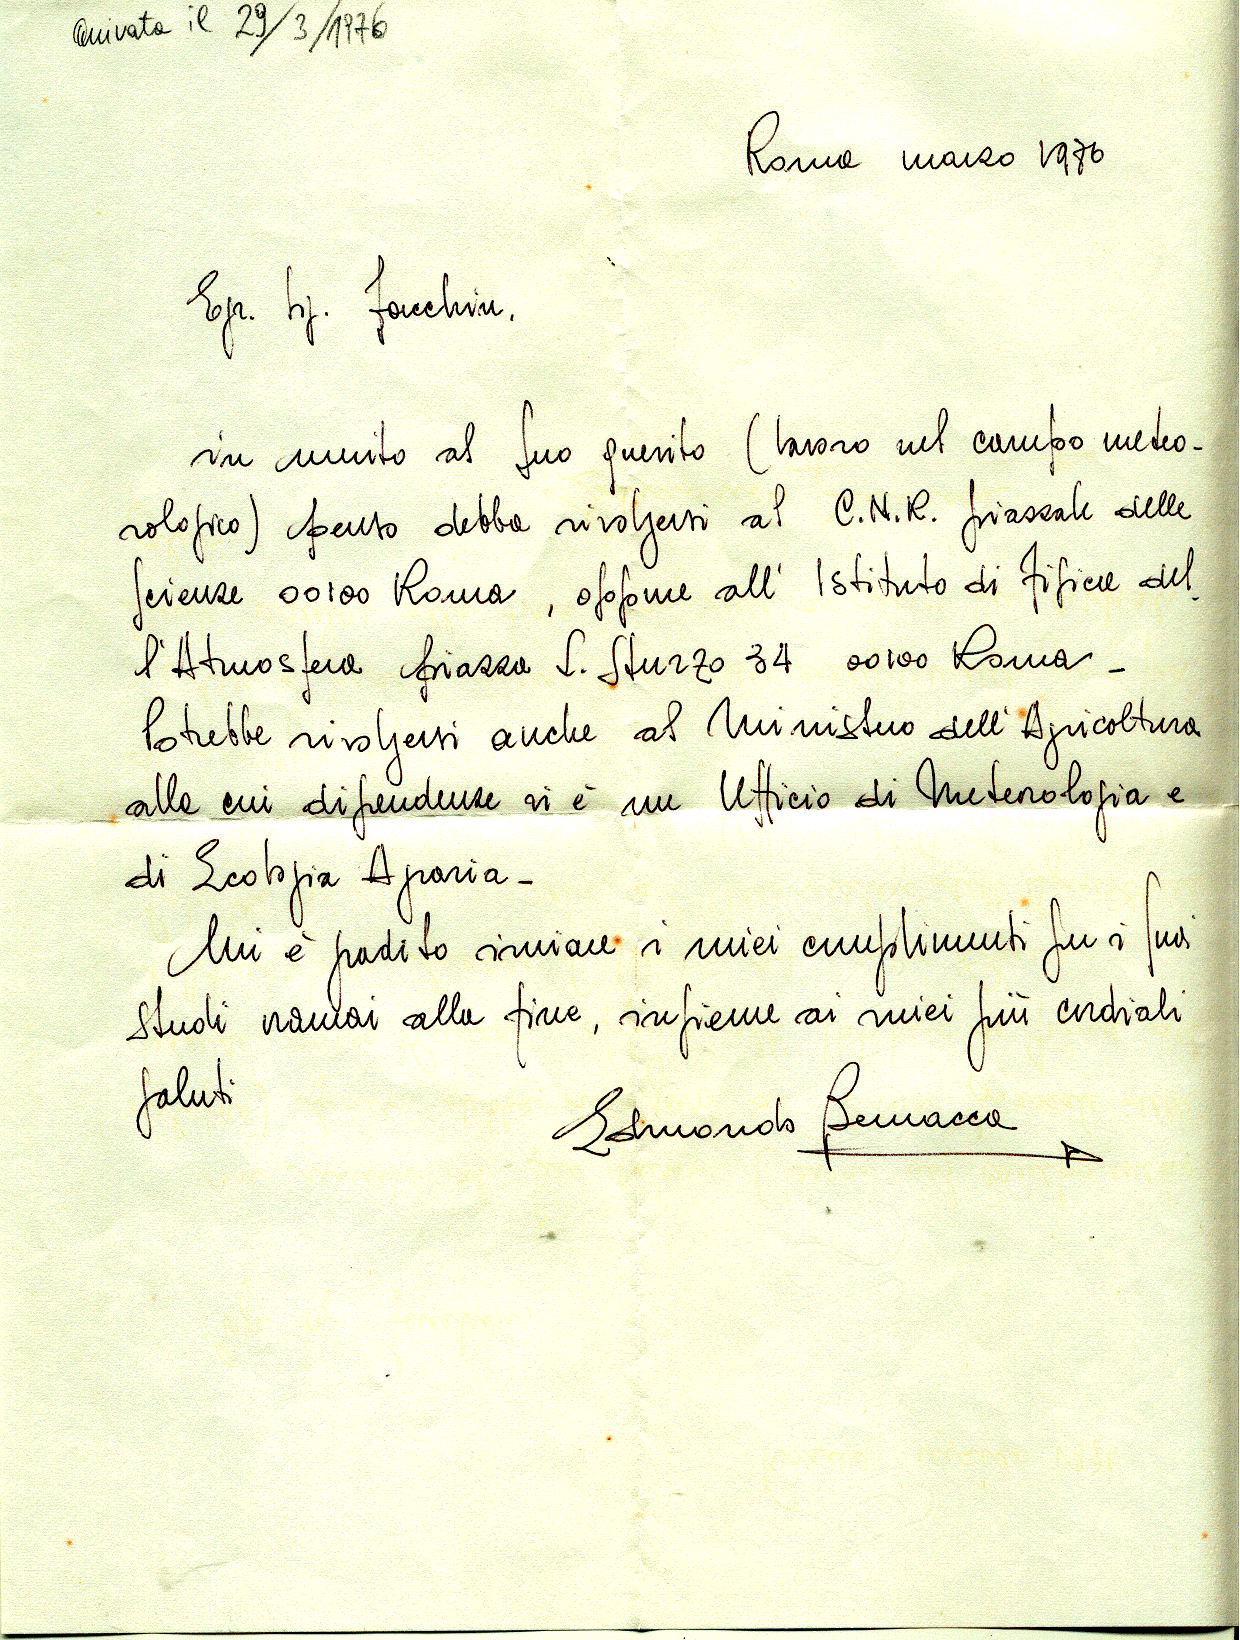 arrivata il 29/3/1976
Roma marzo 1976
Egr. Sig. Facchin,
in merito al Suo quesito (lavoro nel campo meteo-
rologico) penso debba rivolgersi al C.N.R. piazzale delle
Scienze 00100 Roma, oppure all'Istituto di Fisica del
l'Atmosfera piazza L. Sturzo 34 00100 Roma -
Potrebbe rivolgersi anche al Ministero dell'Agricoltura
alle cui dipendenze vi è un Ufficio di Meteorologia e
di Ecologia Agraria -
Mi è gradito inviare i miei complimenti per i Suoi
studi ormai alla fine, insieme ai miei più cordiali
saluti
Edmondo Bernacca